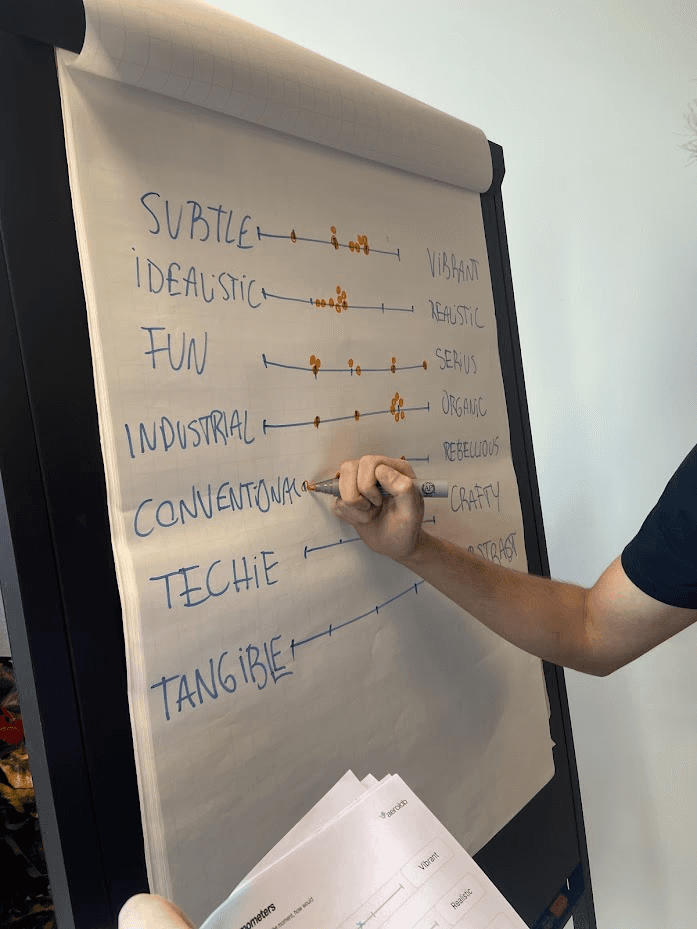 SUBTLE VIBRANT
iDEALiSTiC REALiSTiC
FUN SERiUS
INDUSTRIAL ORGANIC
CONVENTIONAL REBELLIOUS
TECHiE CRAFTY
TANGiBLE
aerolab
mometers
the moment, how would
Vibrant
Realistic